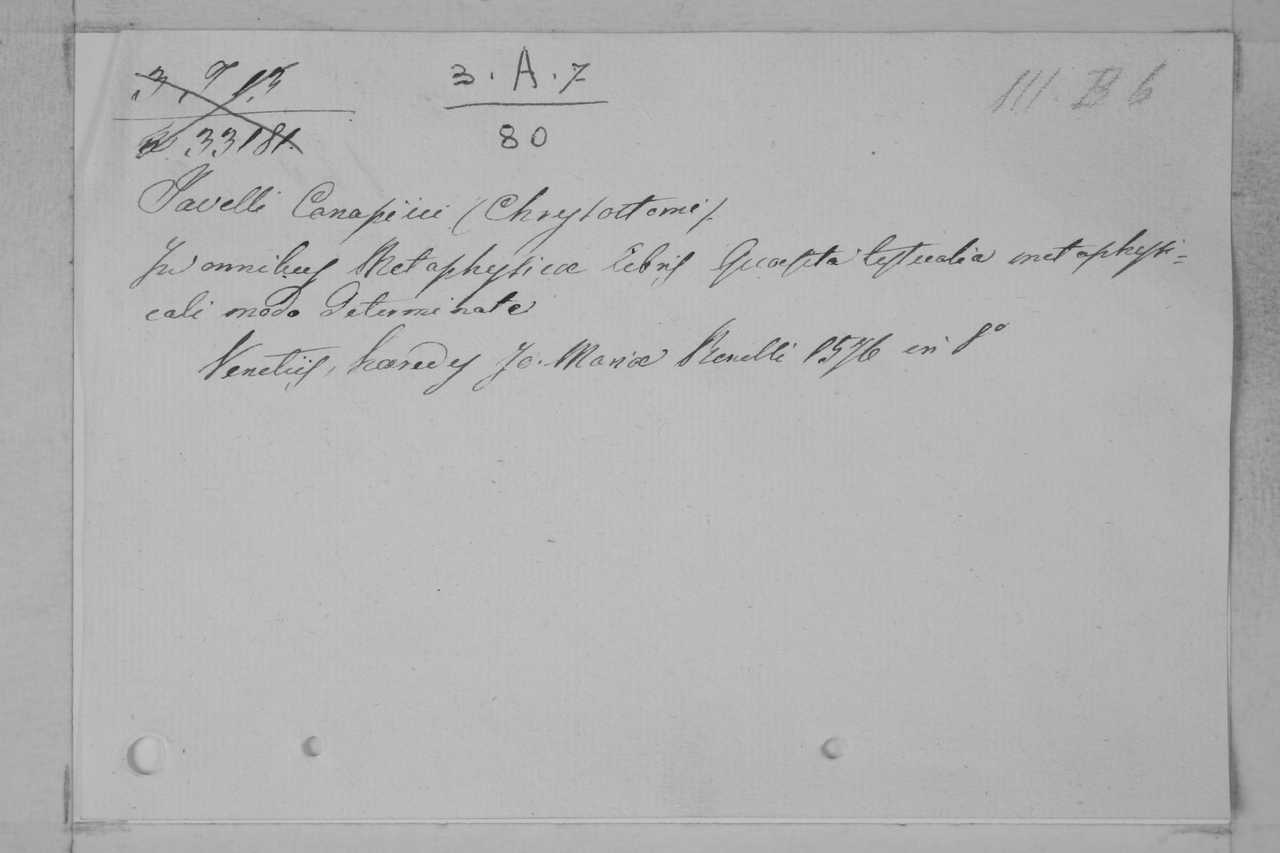 3. A. 7
80
III B 6
Javelli Canapicii (Chrysostomi).
In omnibus Metaphysicæ libris Quæsita textualia metaphysi=
cali modo determinata
Venetiis, hæredes Jo. Mariæ Bonelli 1576 in 8º